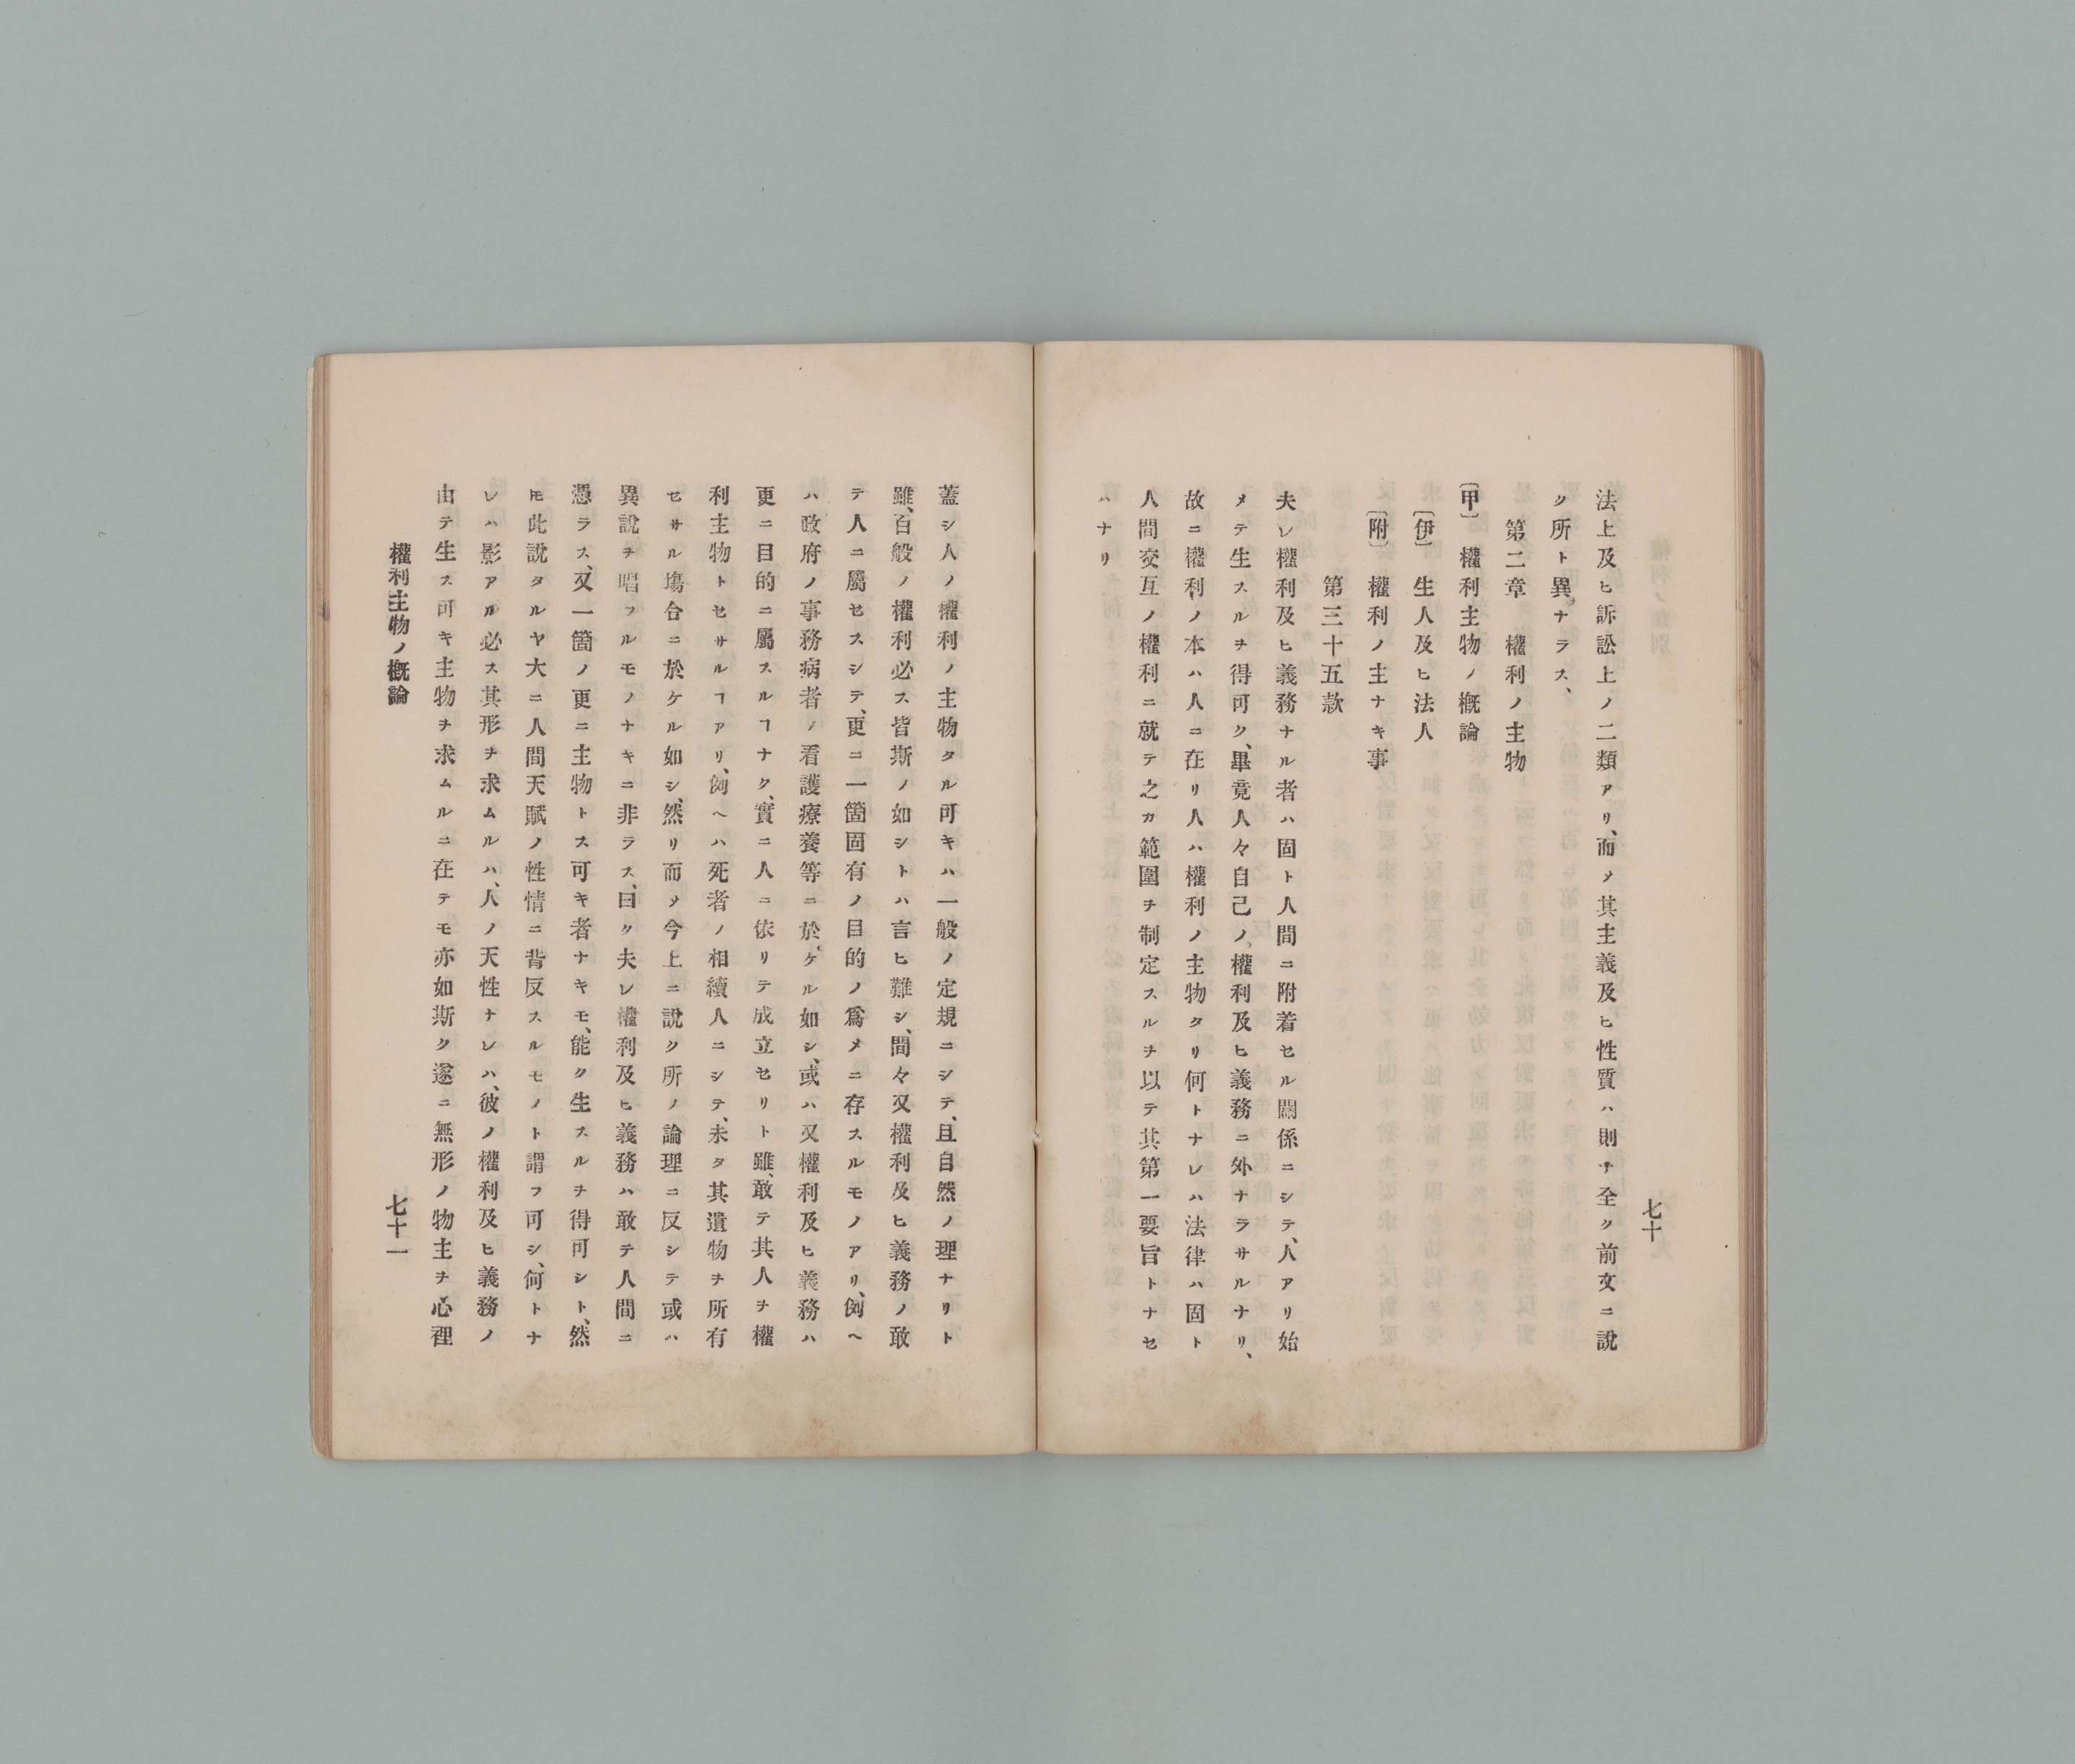 七十
法上及ヒ訴訟上ノ二類アリ、而メ其主義及ヒ性質ハ則チ全ク前文ニ說
ク所ト異ナラス、
第二章　權利ノ主物
〔甲〕　權利主物ノ槪論
〔伊〕　生人及ヒ法人
〔附〕　權利ノ主ナキ事
第三十五款
夫レ權利及ヒ義務ナル者ハ固ト人間ニ附着セル關係ニシテ、人アリ始
メテ生スルヲ得可ク、畢竟人々自己ノ權利及ヒ義務ニ外ナラサルナリ、
故ニ權利ノ本ハ人ニ在リ人ハ權利ノ主物タリ何トナレハ法律ハ固ト
人間交互ノ權利ニ就テ之カ範圍ヲ制定スルヲ以テ其第一要旨トナセ
ハナリ
蓋シ人ノ權利ノ主物タル可キハ一般ノ定規ニシテ、且自然ノ理ナリト
雖、百般ノ權利必ス皆斯ノ如シトハ言ヒ難シ、間々又權利及ヒ義務ノ敢
テ人ニ屬セスシテ、更ニ一箇固有ノ目的ノ爲メニ存スルモノアリ、例ヘ
ハ政府ノ事務病者ノ看護療養等ニ於ケル如シ、或ハ又權利及ヒ義務ハ
更ニ目的ニ屬スルヿナク、實ニ人ニ依リテ成立セリト雖、敢テ其人ヲ權
利主物トセサルヿアリ、例ヘハ死者ノ相續人ニシテ、未タ其遺物ヲ所有
セサル塲合ニ於ケル如シ、然リ而メ今上ニ說ク所ノ論理ニ反シテ或ハ
異說ヲ唱フルモノナキニ非ラス、曰ク夫レ權利及ヒ義務ハ敢テ人間ニ
憑ラス、又一箇ノ更ニ主物トス可キ者ナキモ、能ク生スルヲ得可シト、然
𪜈此說タルヤ大ニ人間天賦ノ性情ニ背反スルモノト謂フ可シ、何トナ
レハ影アル必ス其形ヲ求ムルハ、人ノ天性ナレハ、彼ノ權利及ヒ義務ノ
由テ生ス可キ主物ヲ求ムルニ在テモ亦如斯ク遂ニ無形ノ物主ヲ心裡
權利主物ノ槪論
七十一